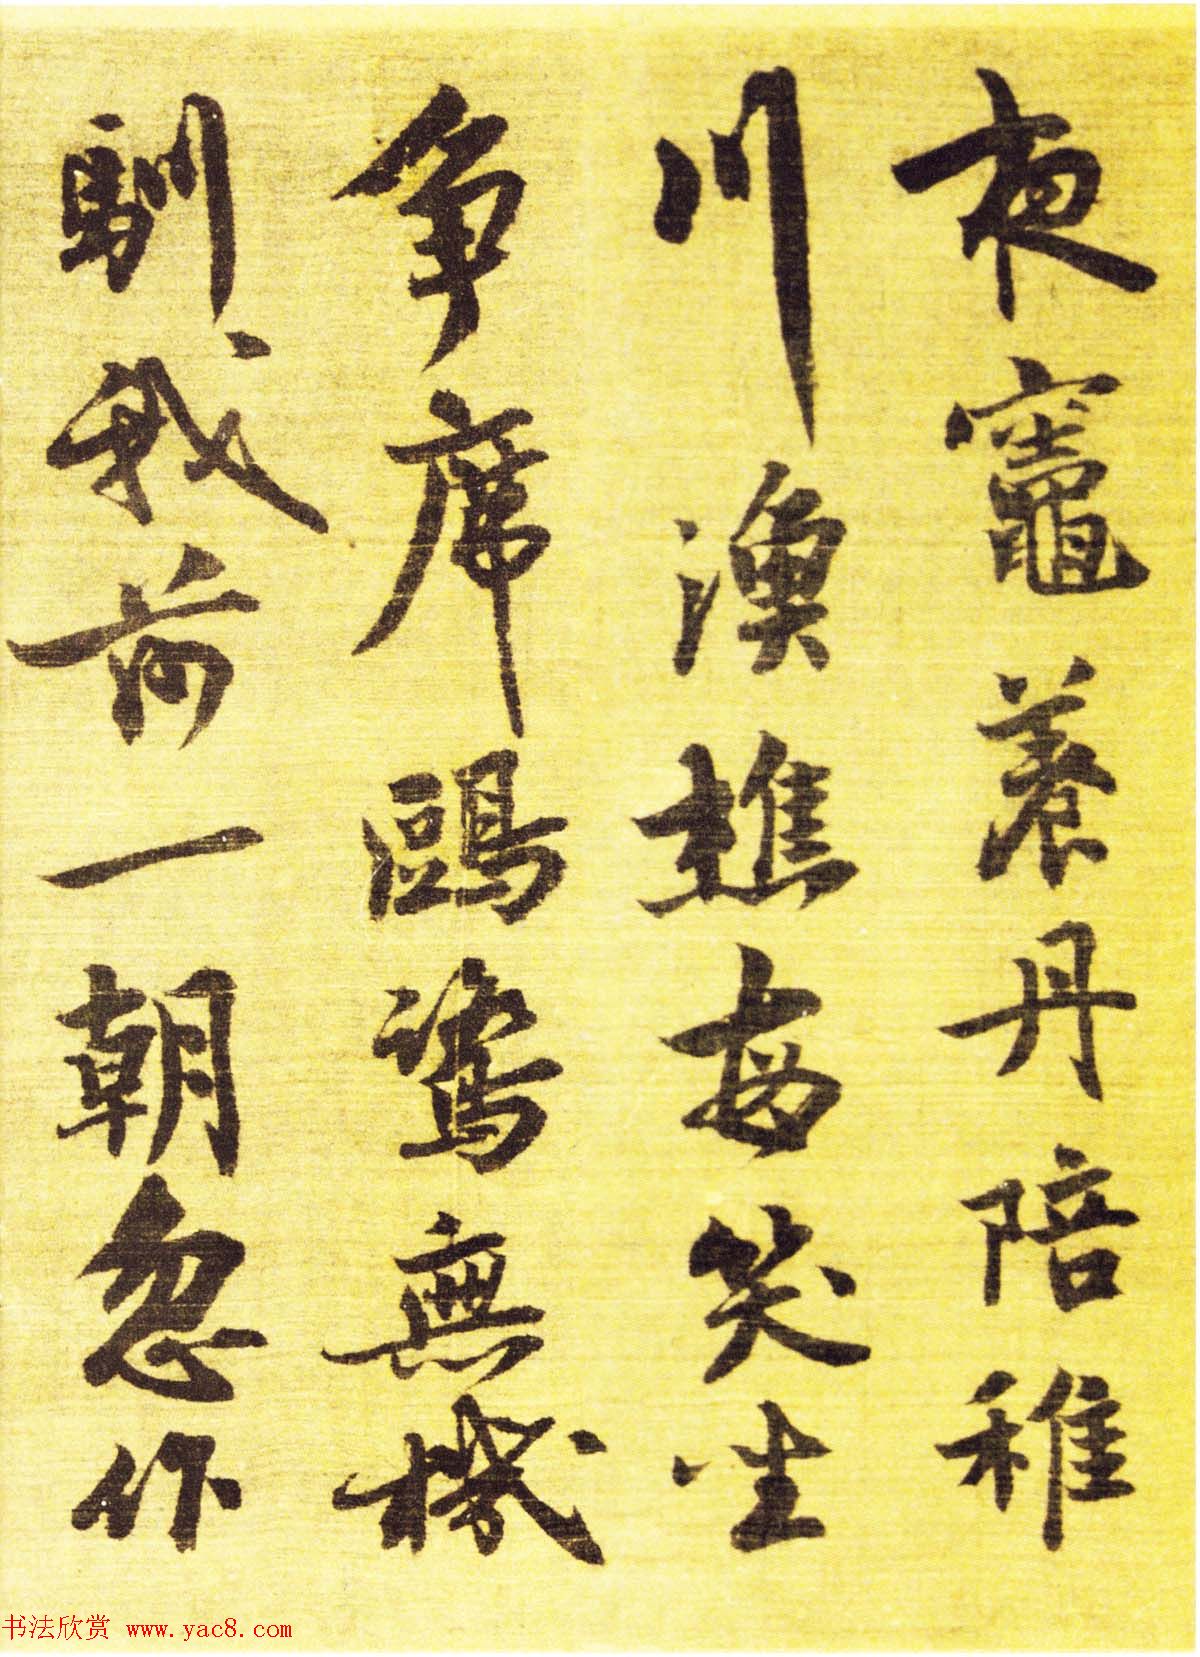 夜竈養丹陪稚
川漁樵每笑坐
爭席鷗鷺無機
馴我前一朝忽作
书法欣赏 www.yac8.com